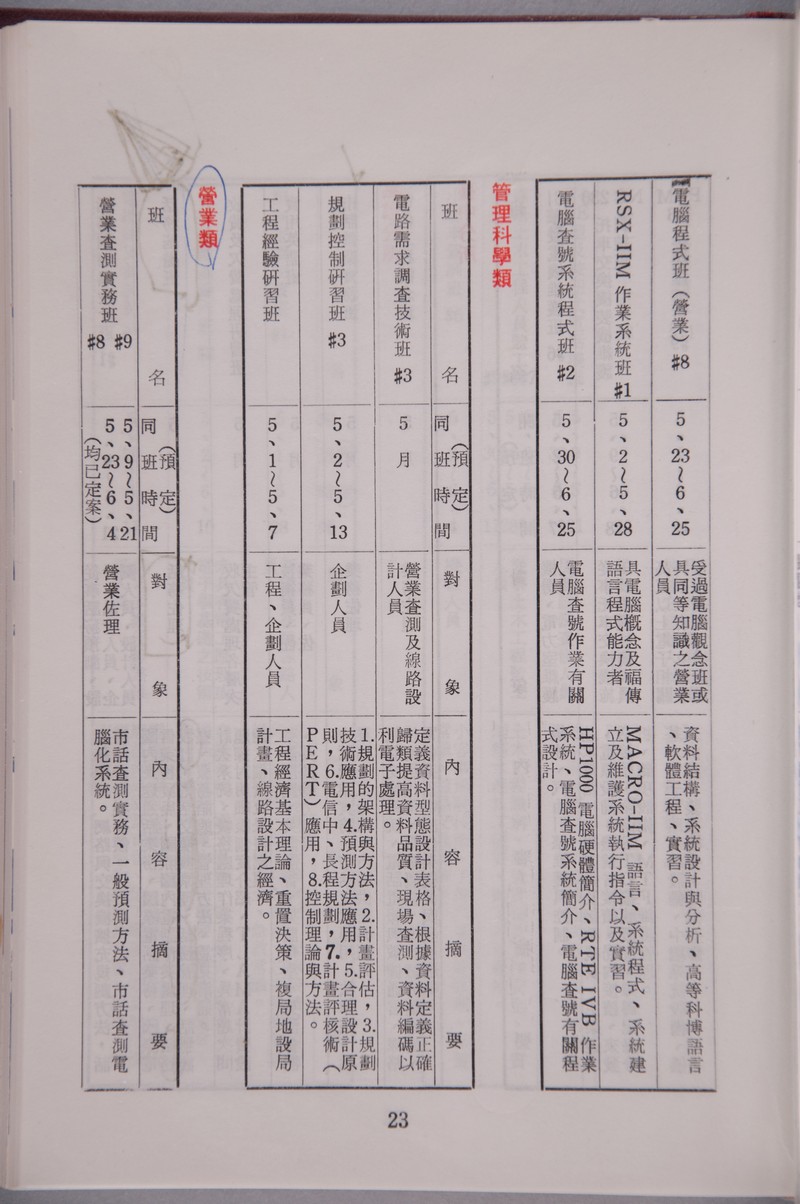 電腦程式班（營業）#8
5、23～6、25
受過電腦觀念班或
具同等知識之營業
人員
資料結構、系統設計與分析、高等科博語言
、軟體工程、實習。
RSX-IIM 作業系統班 #1
5、2～5、28
具電腦概念及福傳
語言程式能力者
MACRO-IIM 語言、系統程式、系統建
立及維護系統執行指令以及實習。
電腦查號系統程式班 #2
5、30～6、25
電腦查號作業有關
人員
HP1000 電腦硬體簡介、RTE IVB 作業
系統、電腦查號系統簡介、電腦查號有關程
式設計。
管理科學類
班 名
同班時間
（預定）
對 象
內 容 摘 要
電路需求調查技術班 #3
5月
營業查測及線路設
計人員
定義資料型態設計表格、根據資料定義正確
歸類提高資料品質、現場查測、資料編碼以
利電子處理。
規劃控制研習班 #3
5、2～5、13
企劃人員
1.規劃的架構與方法，2.計畫評估，3.規劃
技術應用，4.預測方法應用，5.合理設計原
則，6.電信中、長程規劃，7.計畫評核術（
PERT）應用，8.控制理論與方法。
工程經驗研習班
5、1～5、7
工程、企劃人員
工程經濟基本理論、重置決策、複局地設局
計畫、線路設計之經濟。
營業類
班 名
同班時間
（預定）
對 象
內 容 摘 要
營業查測實務班 #9
#8
5、9～5、21
5、23～6、4
（均已定案）
營業佐理
市話查測實務、一般預測方法、市話查測電
腦化系統。
23